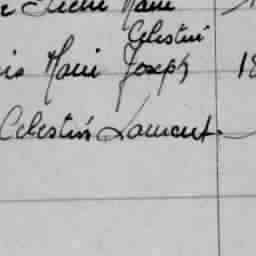 Marie
Celestin
Marie Joseph 18
Celestin Laurent.